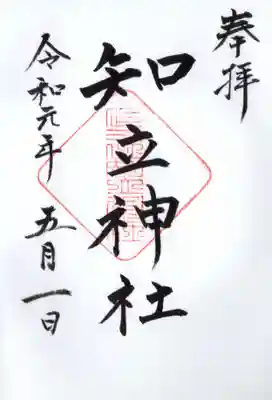 奉拝
知立神社
令和元年 五月一日